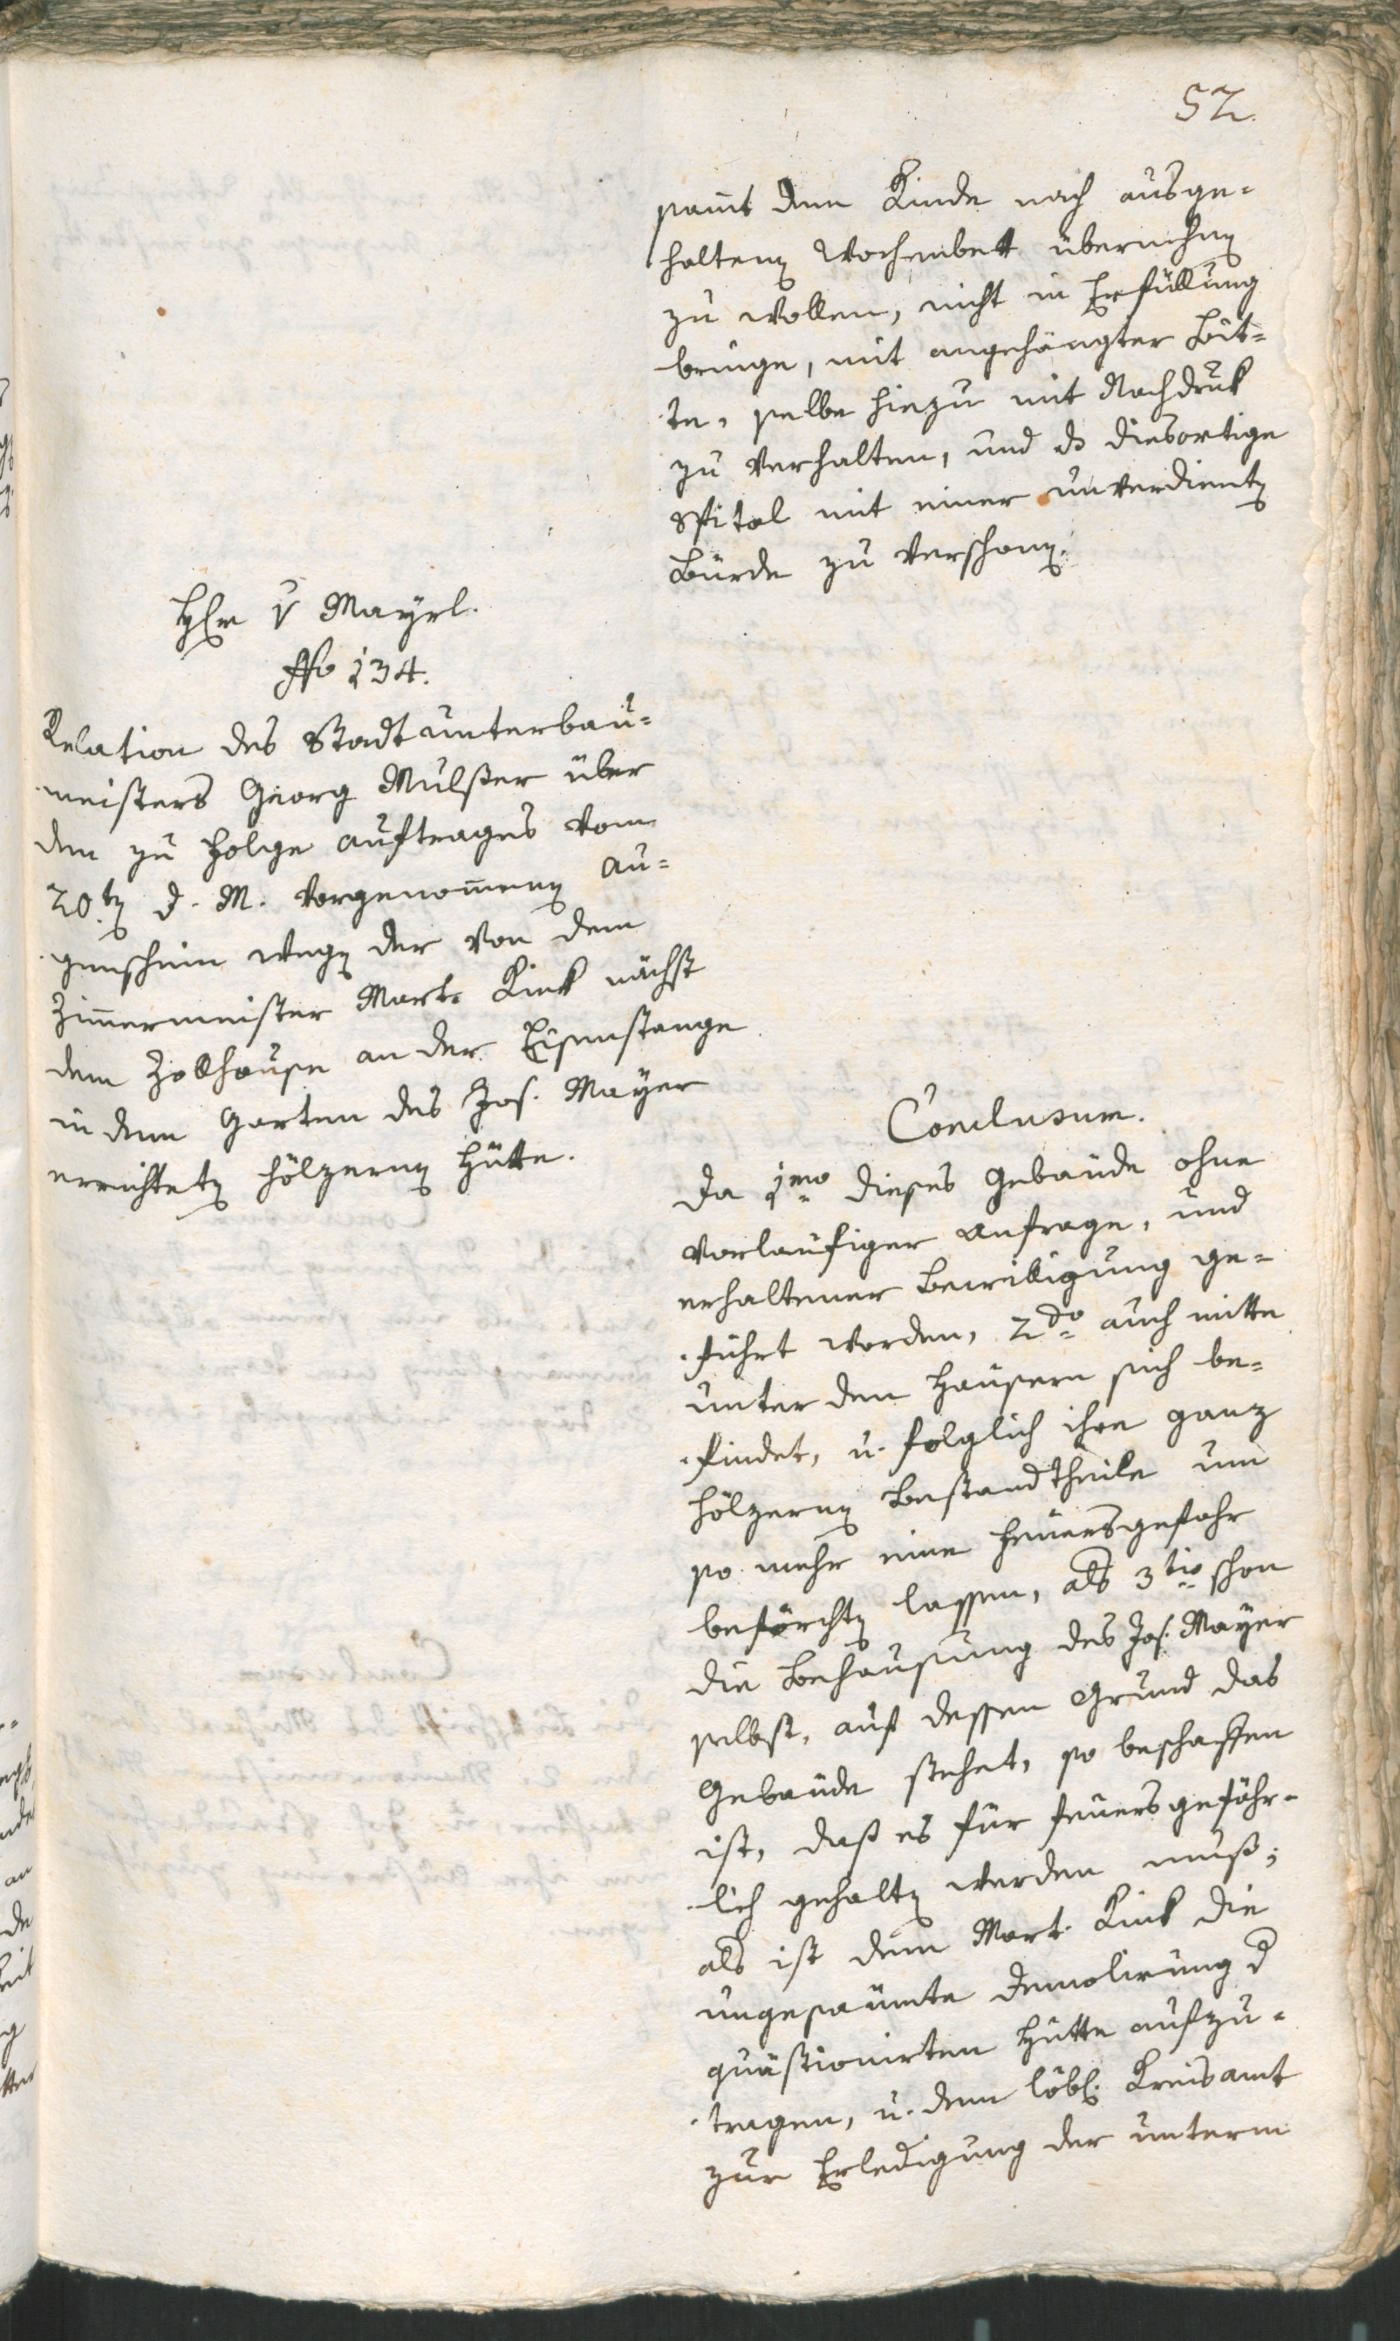 52.
samt dem Kinde nach ausge-
haltenen Wochenbett übernehmen
zu wollen, nicht in Erfüllung
bringe, mit angehängter Bit-
te, selbe hiezu mit Nachdruk
zu verhalten, und ds diesortige
Spital mit einer unverdienten
Bürde zu verschonen.
Hr v Mayrl.
No 134.
Relation des Stadtunterbau-
meisters Georg Mulser über
den zu Folge Auftrages vom
20ten d. M. vorgenommenen Au-
genschein wegen der von dem
Zimmermeister Mart. Kink nächst
dem Zollhause an der Eisenstange
in dem Garten des Jos. Mayer
errichteten hölzernen Hütte.
Conclusum.
Da 1mo dieses Gebäude ohne
vorläufiger Anfrage, und
erhaltener Bewilligung ge-
führt worden, 2do auch mitte
unter den Häusern sich be-
findet, u. folglich ihre ganz
hölzernen Bestandtheile um
so mehr eine Feuersgefahr
beförchten lassen, als 3tio schon
die Behausung des Jos. Mayer
selbst, auf dessen Grund das
Gebäude stehet, so beschaffen
ist, daß es für feuersgefähr-
lich gehalten werden muß;
als ist dem Mart. Kink die
ungesäumte Demolirung d
quästionirten Hütte aufzu-
tragen, u. dem löbl. Kreisamt
zur Erledigung der unterm